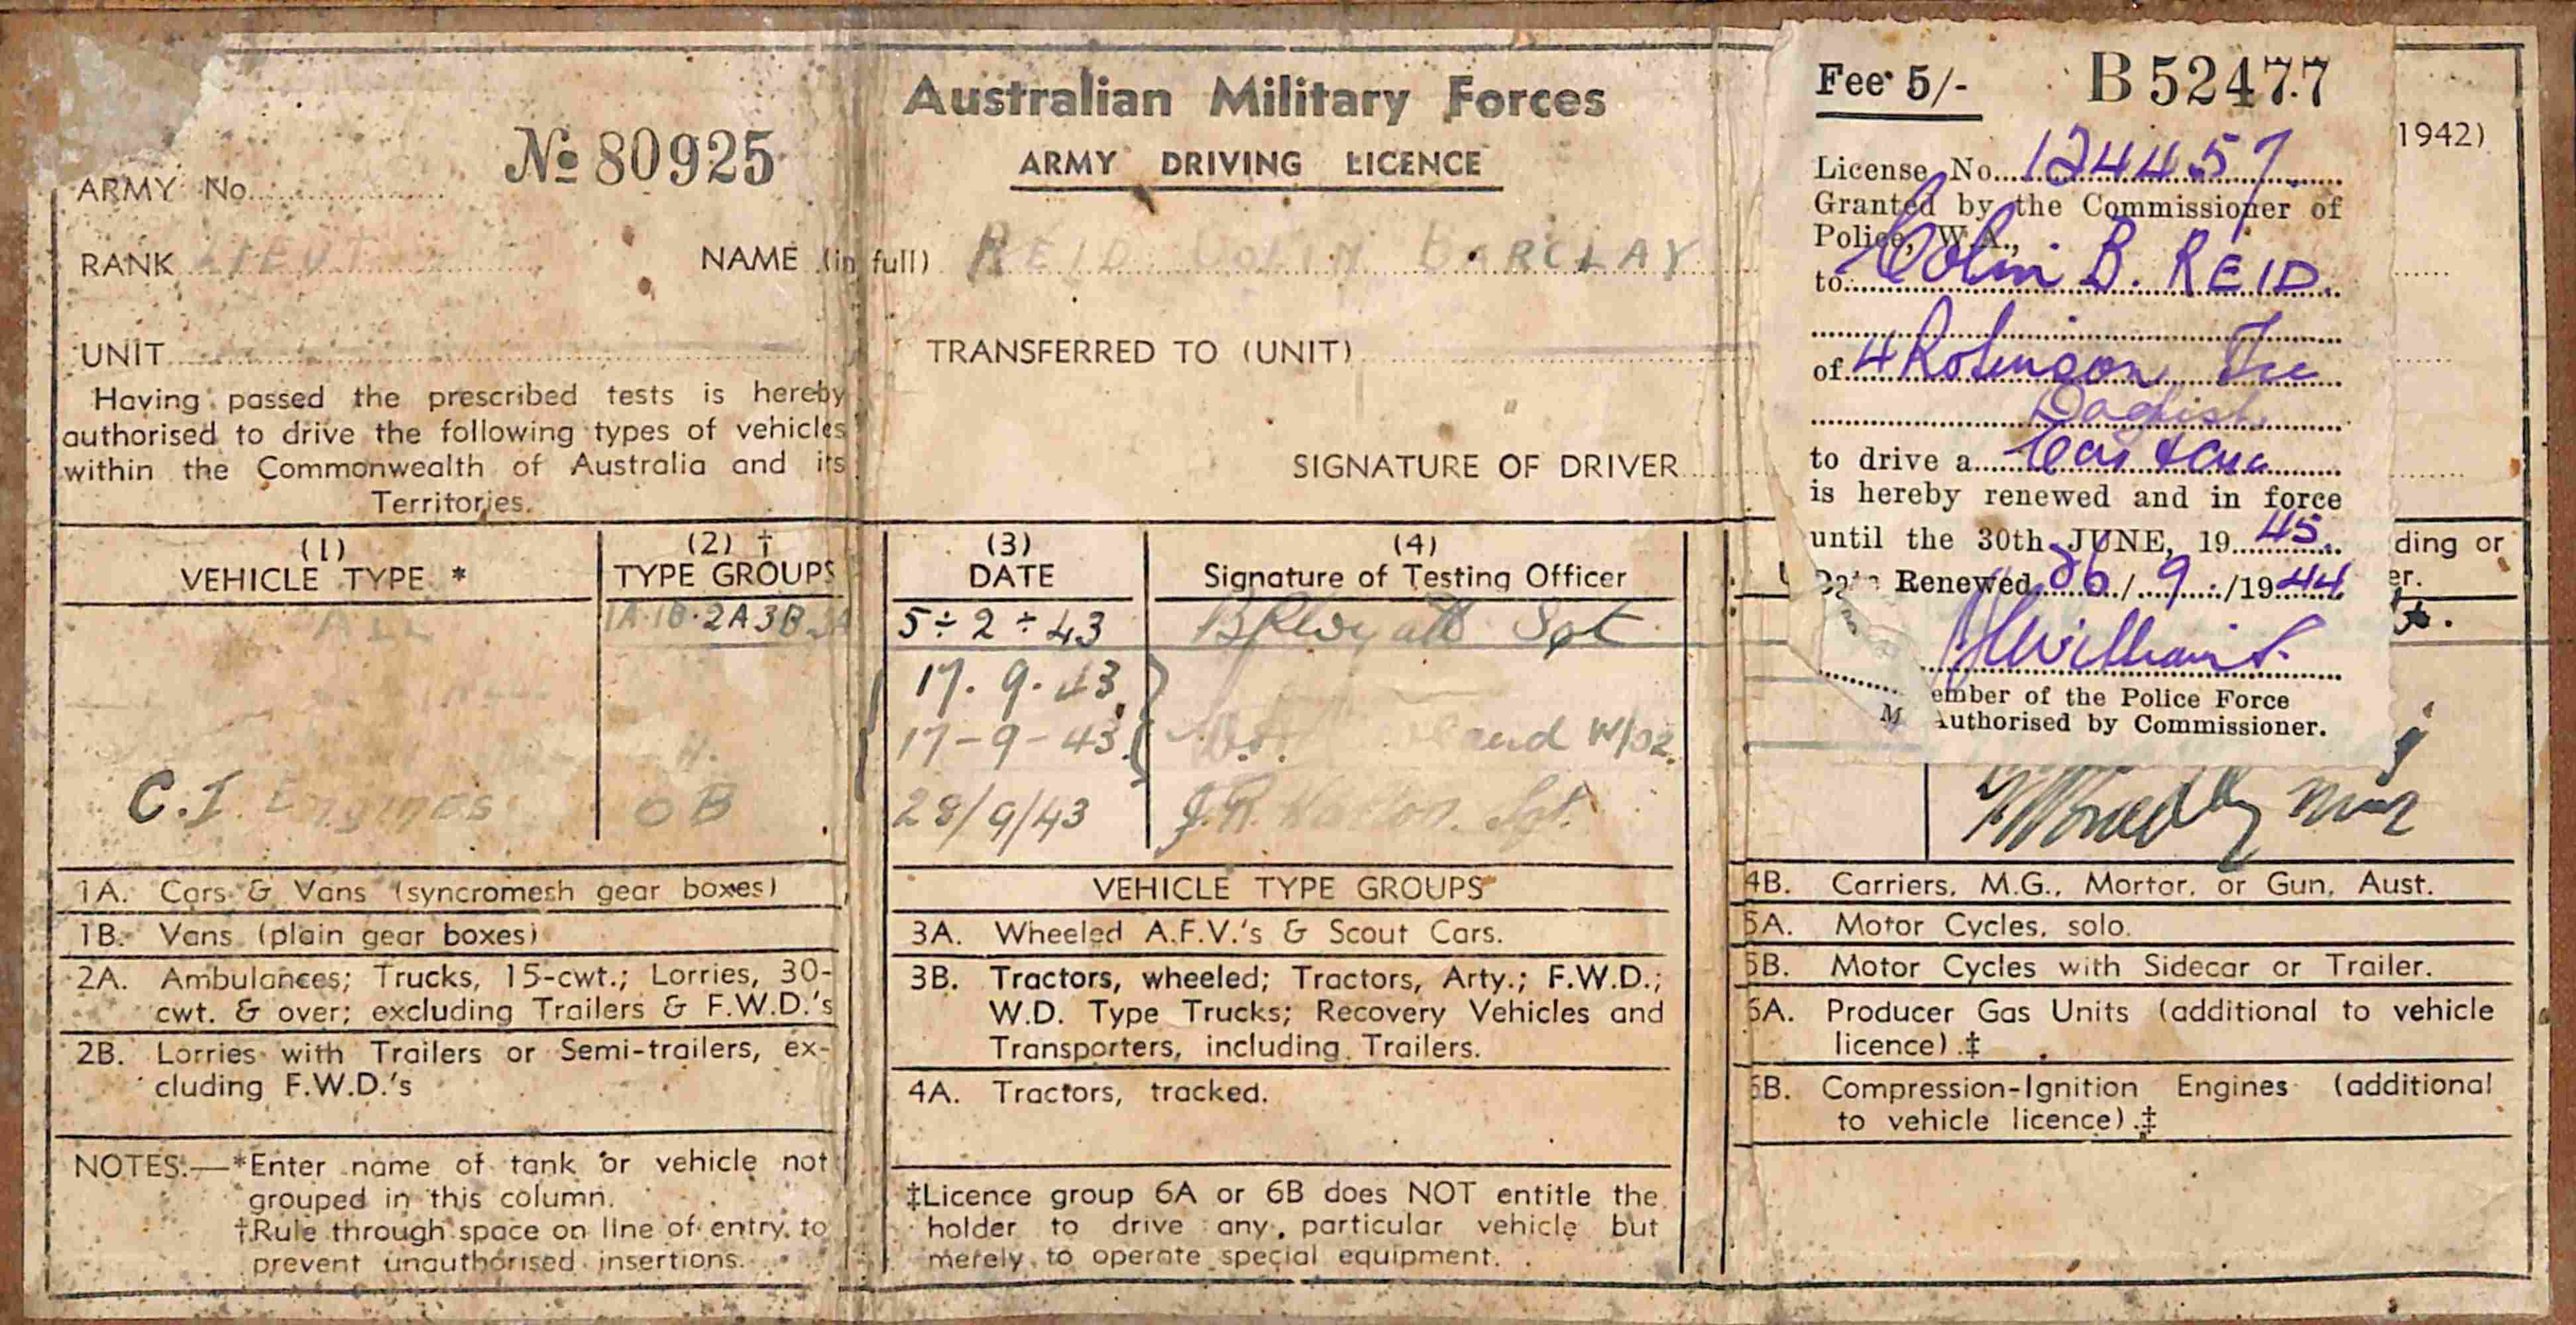 Australian Military Forces
ARMY DRIVING LICENCE
1942)
№ 80925
ARMY No.
RANK LIEUT NAME (in full) REID COLIN BARCLAY
UNIT
TRANSFERRED TO (UNIT)
Having passed the prescribed tests is hereby
authorised to drive the following types of vehicles
within the Commonwealth of Australia and its
Territories.
SIGNATURE OF DRIVER
(1)
VEHICLE TYPE *
(2) †
TYPE GROUPS
(3)
DATE
(4)
Signature of Testing Officer
ding or
er.
ALL 1A.1B.2A3B 5÷2÷43 Sgt
17.9.43
17-9-43 W/O2.
C.I Engines 6B 28/9/43 Sgt.
1A. Cars & Vans (syncromesh gear boxes)
1B. Vans (plain gear boxes)
2A. Ambulances; Trucks, 15-cwt.; Lorries, 30-
cwt. & over; excluding Trailers & F.W.D.'s
2B. Lorries with Trailers or Semi-trailers, ex-
cluding F.W.D.'s
NOTES.—*Enter name of tank or vehicle not
grouped in this column.
†Rule through space on line of entry to
prevent unauthorised insertions.
VEHICLE TYPE GROUPS
3A. Wheeled A.F.V.'s & Scout Cars.
3B. Tractors, wheeled; Tractors, Arty.; F.W.D.;
W.D. Type Trucks; Recovery Vehicles and
Transporters, including Trailers.
4A. Tractors, tracked.
‡Licence group 6A or 6B does NOT entitle the
holder to drive any particular vehicle but
merely to operate special equipment.
4B. Carriers, M.G., Mortar, or Gun, Aust.
5A. Motor Cycles, solo.
5B. Motor Cycles with Sidecar or Trailer.
6A. Producer Gas Units (additional to vehicle
licence).‡
6B. Compression-Ignition Engines (additional
to vehicle licence).‡
Fee 5/- B 52477
License No. 124457
Granted by the Commissioner of
Police, W.A.,
to Colin B. REID.
of 4 Robinson Tce
Daglish
to drive a Car
is hereby renewed and in force
until the 30th JUNE, 19 45.
Date Renewed 26/9/1944
Williams
Member of the Police Force
Authorised by Commissioner.